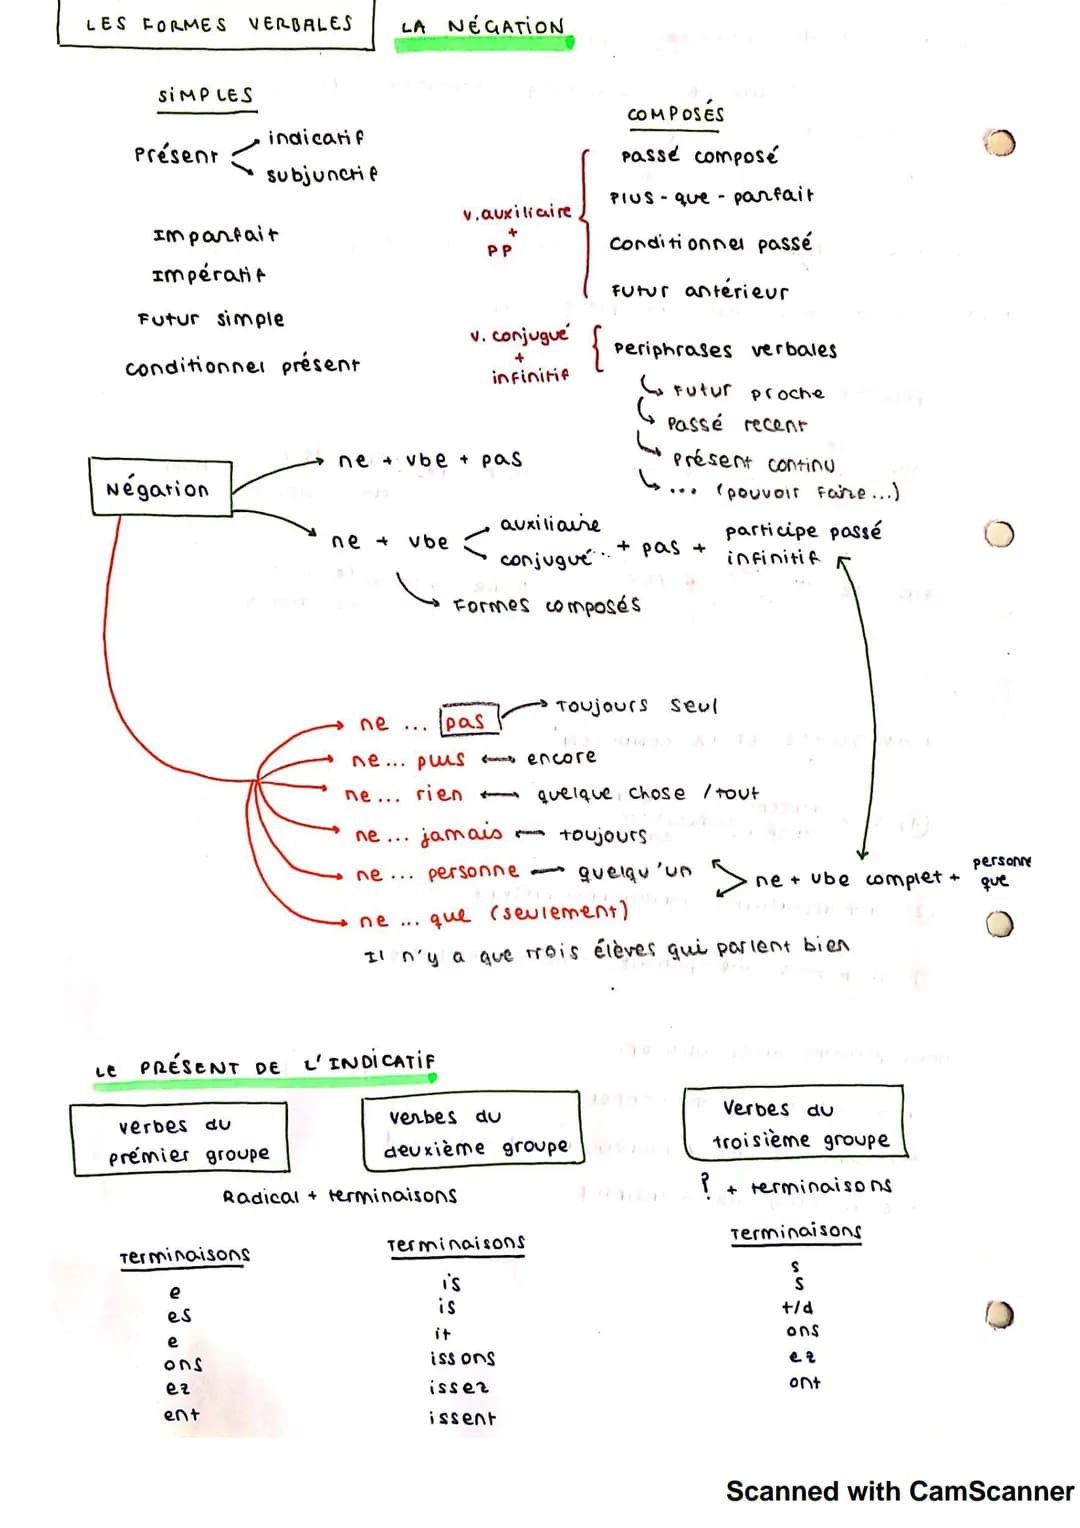 LES FORMES VERBALES
LA NÉGATION
SIMPLES
Présent
indicatif
subjunctif
Imparfait
Impératif
Futur simple
conditionnel présent
COMPOSÉS
v. auxiliaire
+
PP
Passé composé
Plus-que-parfait
Conditionnel passé
Futur antérieur
v. conjugué
+
infinitif
Periphrases verbales
Futur proche
Passé recent
Présent continu
... (pouvoir faire...)
Négation
ne + vbe + pas
ne + vbe
auxiliaire
conjugué
+ pas +
participe passé
infinitif
Formes composés
ne ... pas
Toujours seul
ne... plus
encore
ne... rien
quelque chose / tout
ne... jamais
toujours
ne... personne
quelqu'un
ne + vbe complet +
personne
que
ne ... que (seulement)
Il n'y a que trois élèves qui parlent bien
Le PRÉSENT DE L'INDICATIF
verbes du
prémier groupe
verbes du
deuxième groupe
Verbes du
troisième groupe
Radical + terminaisons
? + terminaisons
Terminaisons
e
es
e
ons
ez
ent
Terminaisons
is
is
it
issons
issez
issent
Terminaisons
s
s
t/d
ons
ez
ont
Scanned with CamScanner